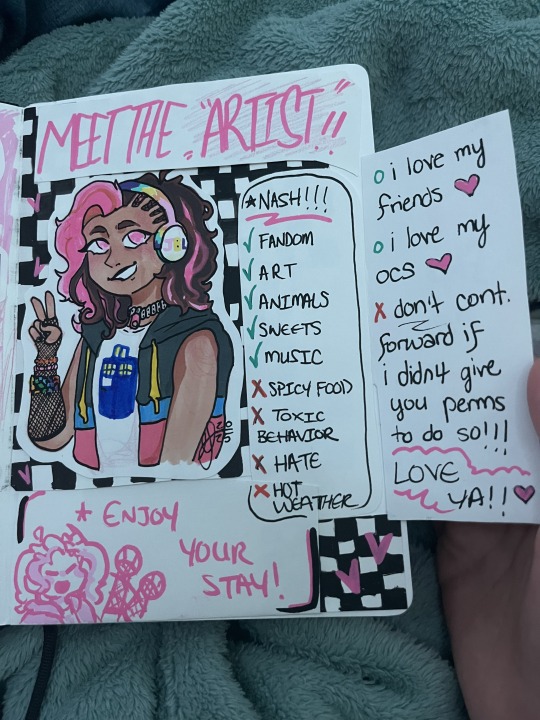 MEET THE "ARTIST"!!
*NASH!!!
✓ FANDOM
✓ ART
✓ ANIMALS
✓ SWEETS
✓ MUSIC
X SPICY FOOD
X TOXIC
BEHAVIOR
X HATE
X HOT
WEATHER
* ENJOY
YOUR
STAY!
o i love my
friends ♥
o i love my
ocs ♥
X don't cont.
forward if
i didn't give
you perms
to do so!!!
LOVE
YA!! ♥